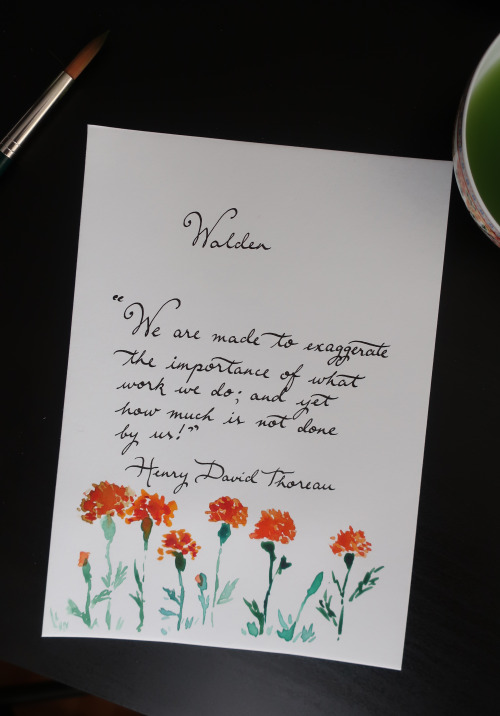 Walden
“We are made to exaggerate
the importance of what
work we do; and yet
how much is not done
by us!”
Henry David Thoreau